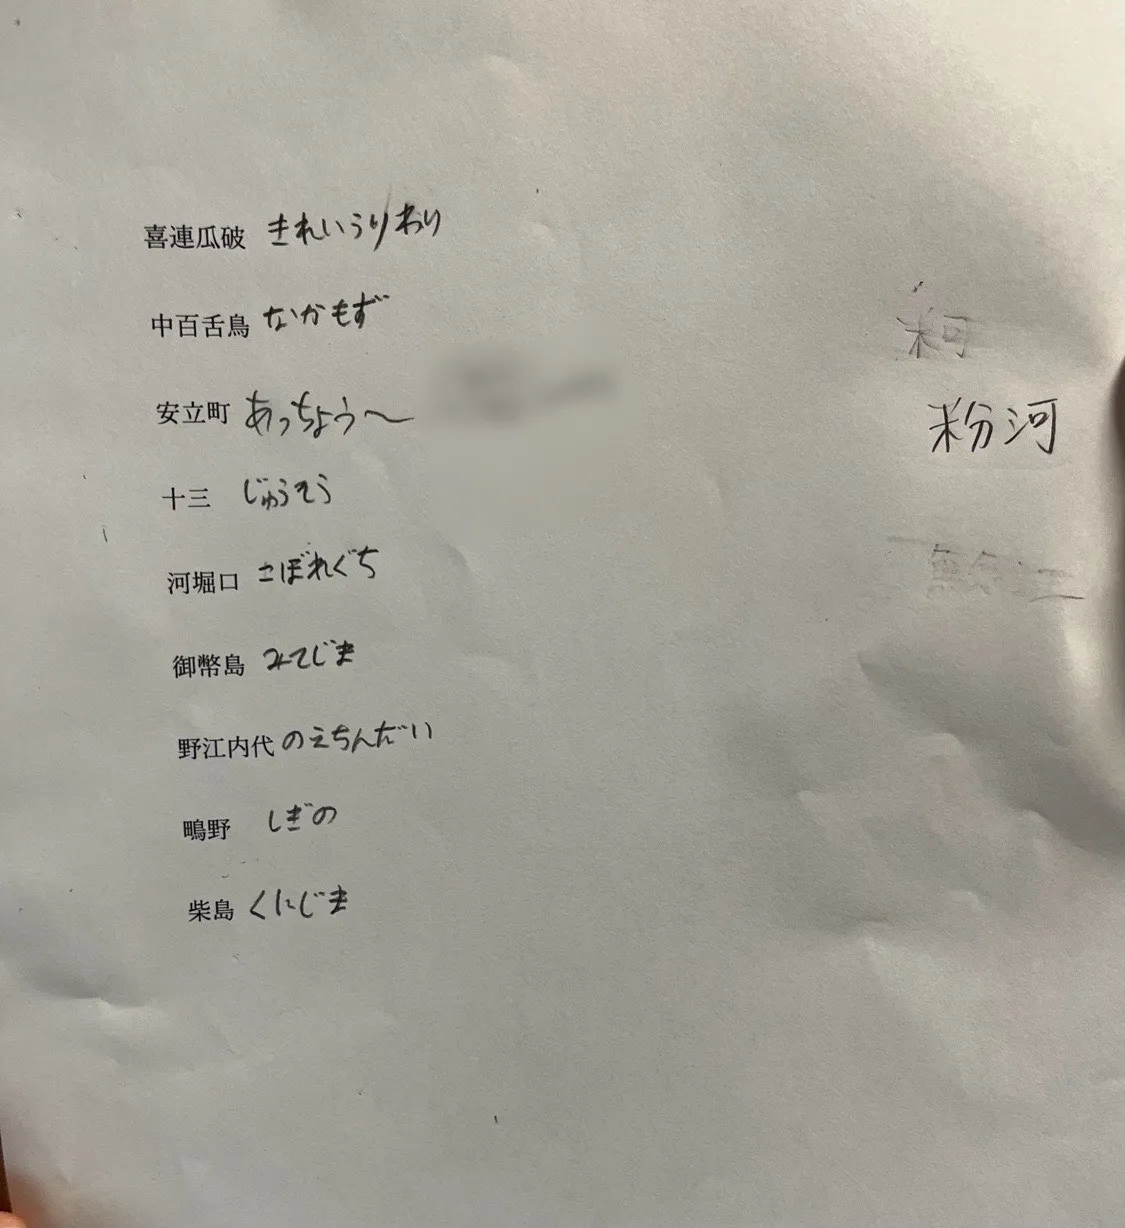 喜連瓜破 きれいうりわり
中百舌鳥 なかもず
安立町 あっちょう〜
十三 じゅうそう
河堀口 こぼれぐち
御幣島 みてじま
野江内代 のえちんだい
鴫野 しぎの
柴島 くにじま
粉河